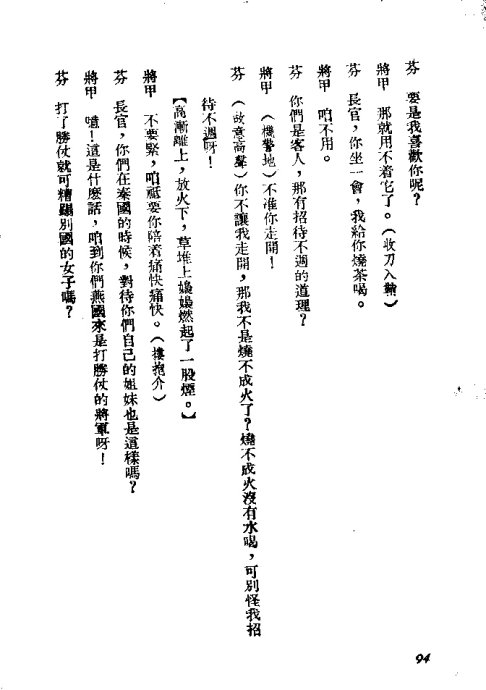 芬　要是我喜歡你呢？
將甲　那就用不着它了。（收刀入鞘）
芬　長官，你坐一會，我給你燒茶喝。
將甲　咱不用。
芬　你們是客人，那有招待不週的道理？
將甲　（機警地）不准你走開！
芬　（故意高聲）你不讓我走開，那我不是燒不成火了？燒不成火沒有水喝，可別怪我招
待不週呀！
【高漸離上，放火下，草堆上裊裊燃起了一股煙。】
將甲　不要緊，咱祗要你陪着痛快痛快。（摟抱介）
芬　長官，你們在秦國的時候，對待你們自己的姐妹也是這樣嗎？
將甲　噫！這是什麽話，咱到你們燕國來是打勝仗的將軍呀！
芬　打了勝仗就可糟蹋別國的女子嗎？
94